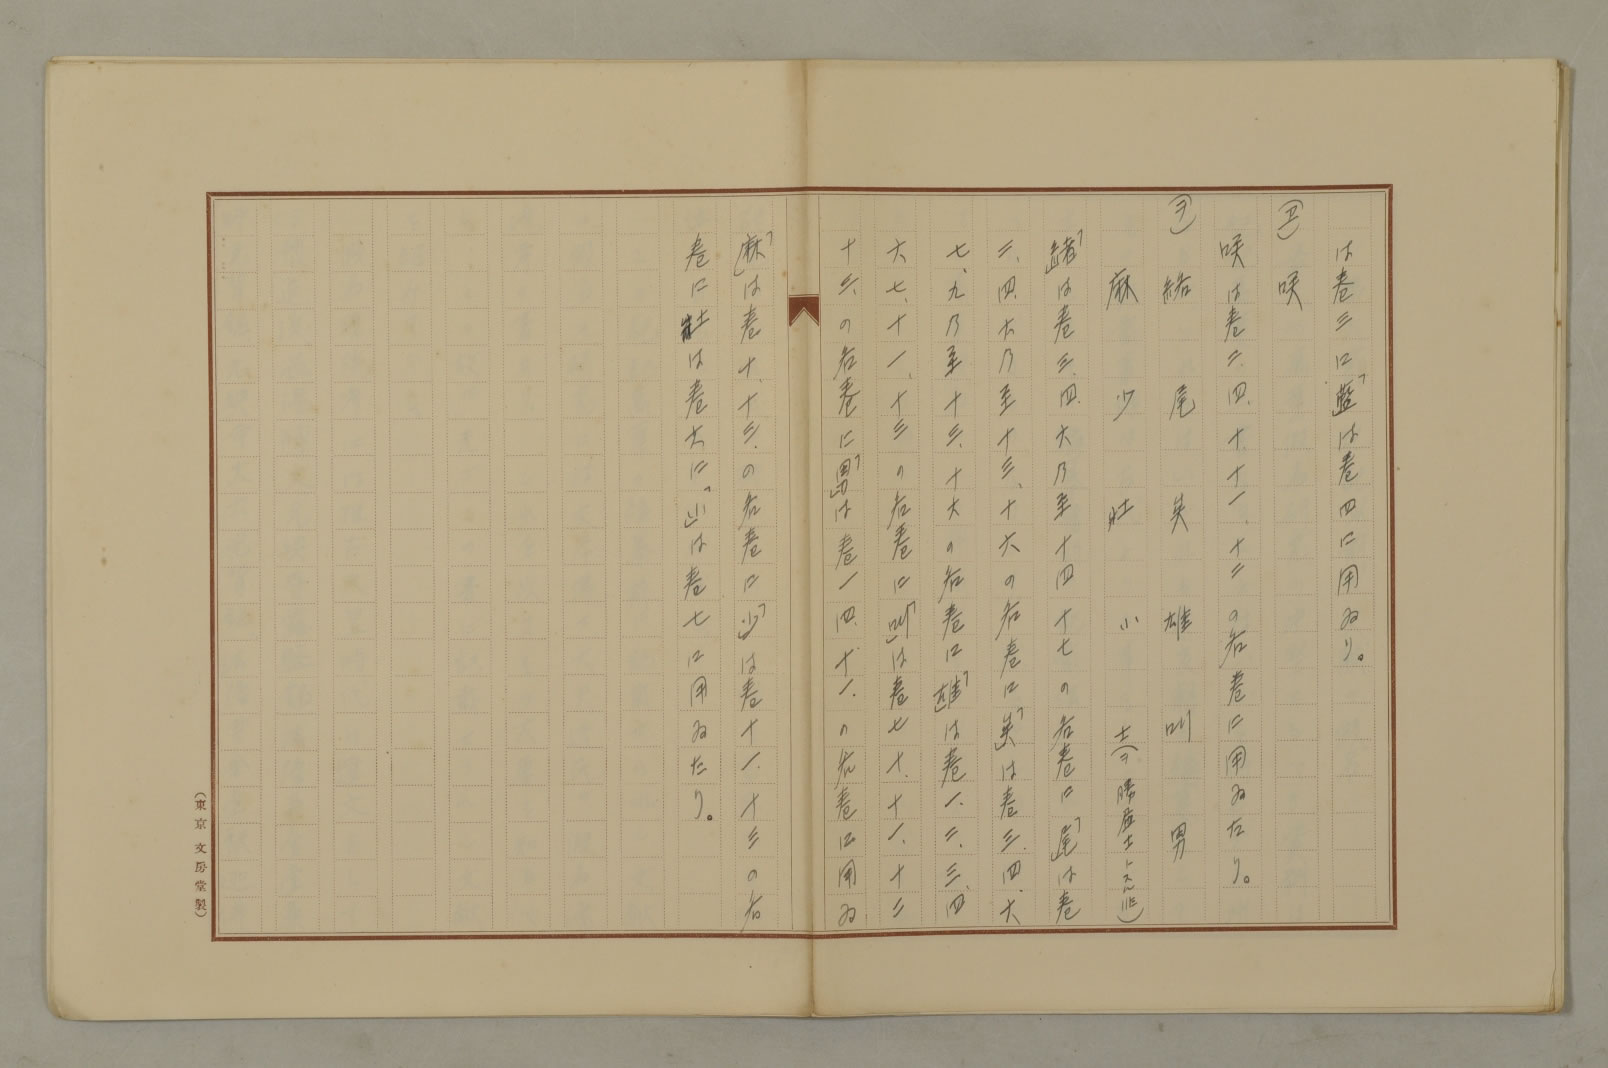 は巻三に「藍」は巻四に用ゐり。
(ヱ) 咲
咲は巻三、四、十、十一、十二の各巻に用ゐたり。
(ヲ) 緒 尾 矣 雄 叫 男
麻 少 壮 小 士(ヲ勝益士トスルハ非)
「緒」は巻三、四、六乃至十四十七の各巻に「尾」は巻
三、四、六乃至十三、十六の各巻に「矣」は巻三、四、六
七、九乃至十三、十六の各巻に「雄」は巻一、二、三、四
六七、十一、十三の各巻に「叫」は巻七十、十一、十二
十三、の各巻に「男」は巻一四、十一、の各巻に用ゐ
「麻」は巻十、十三、の各巻に「少」は巻十一、十三の各
巻に壮は巻六に、「小」は巻七に用ゐたり。
(東京文房堂製)